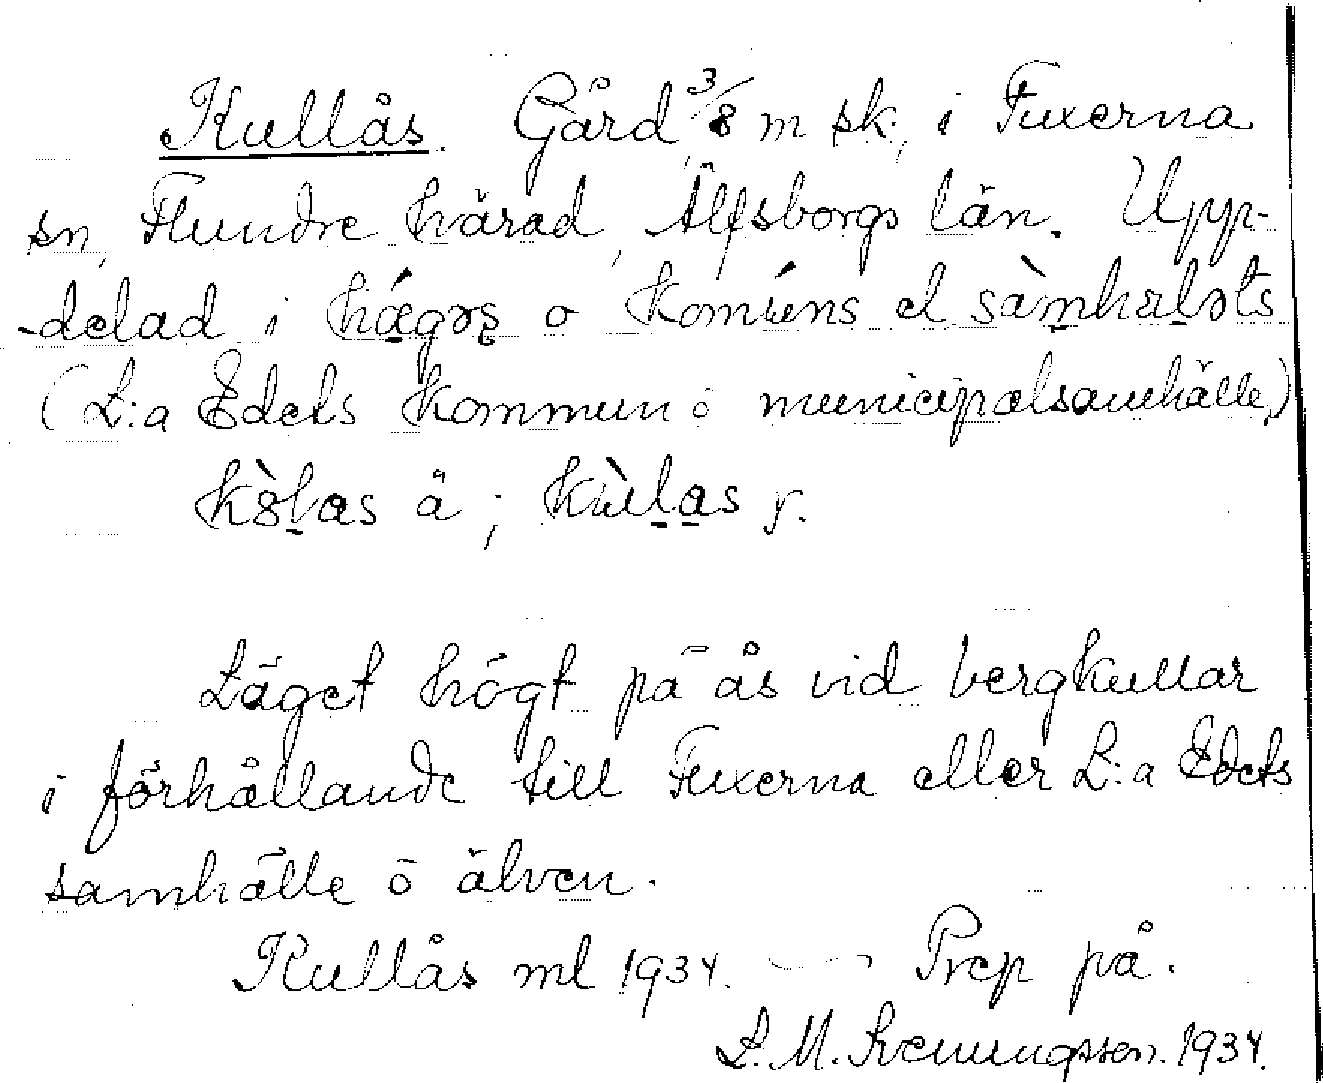 Kullås. Gård, 3/8 m sk., i Fuxerna
sn, Flundre härad, Älfsborgs län. Upp-
-delad i hǽgəs o komúns el sàmhæləts
(L:a Edets kommun o municipalsamhälle)
kòlas ä; kùlas y.
Läget högt på ås vid bergkullar
i förhållande till Fuxerna eller L:a Edets
samhälle ö älven.
Kullås ml 1934. — Prep på.
L. M. Svenungsson. 1934.